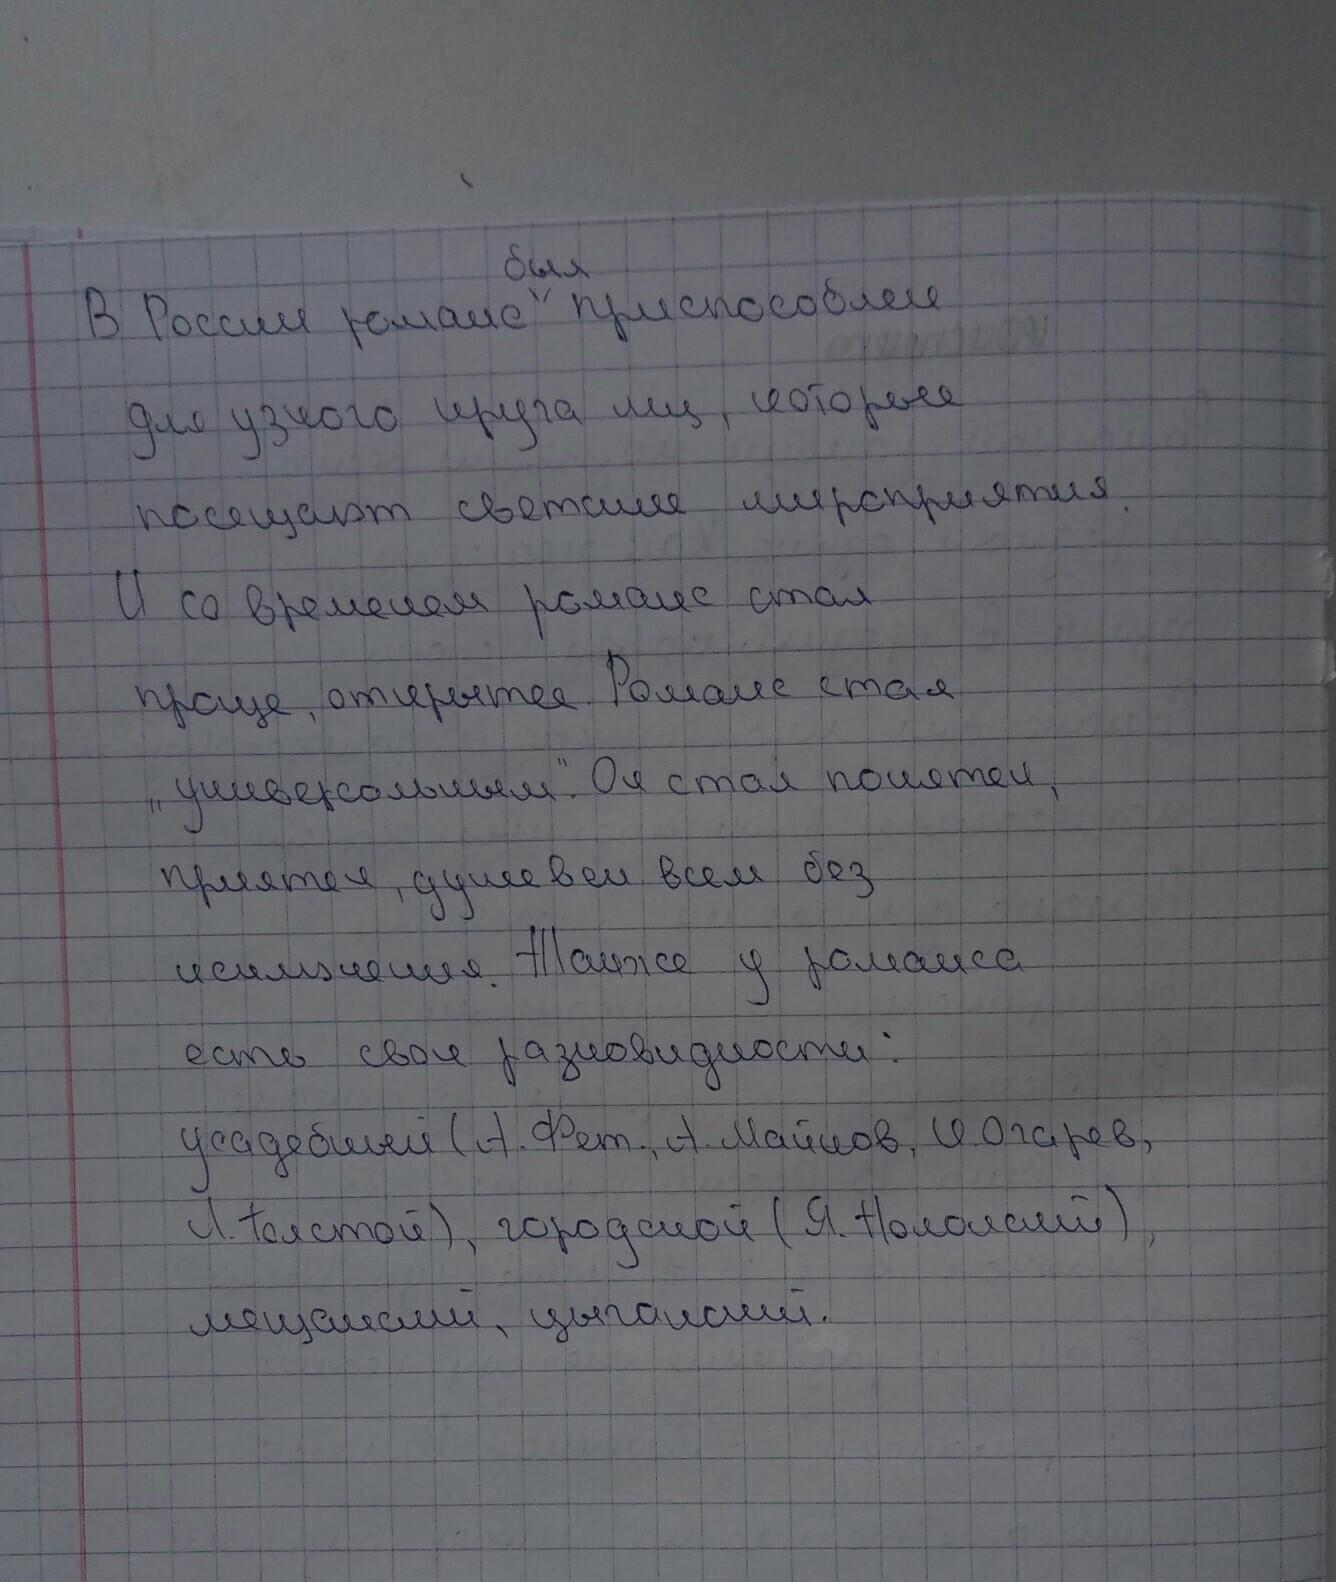 был
В России романс приспособлен
для узкого круга лиц, которые
посещают светские мироприятия.
И со временем романс стал
проще, открытее. Романс стал
„универсальным". Он стал понятен,
приятен, душевен всем без
исключения. Также у романса
есть свои разновидности:
усадебный (А. Фет., А. Майков, Н. Огарев,
Л. Толстой), городской (Я. Полонский),
мещанский, цыганский.